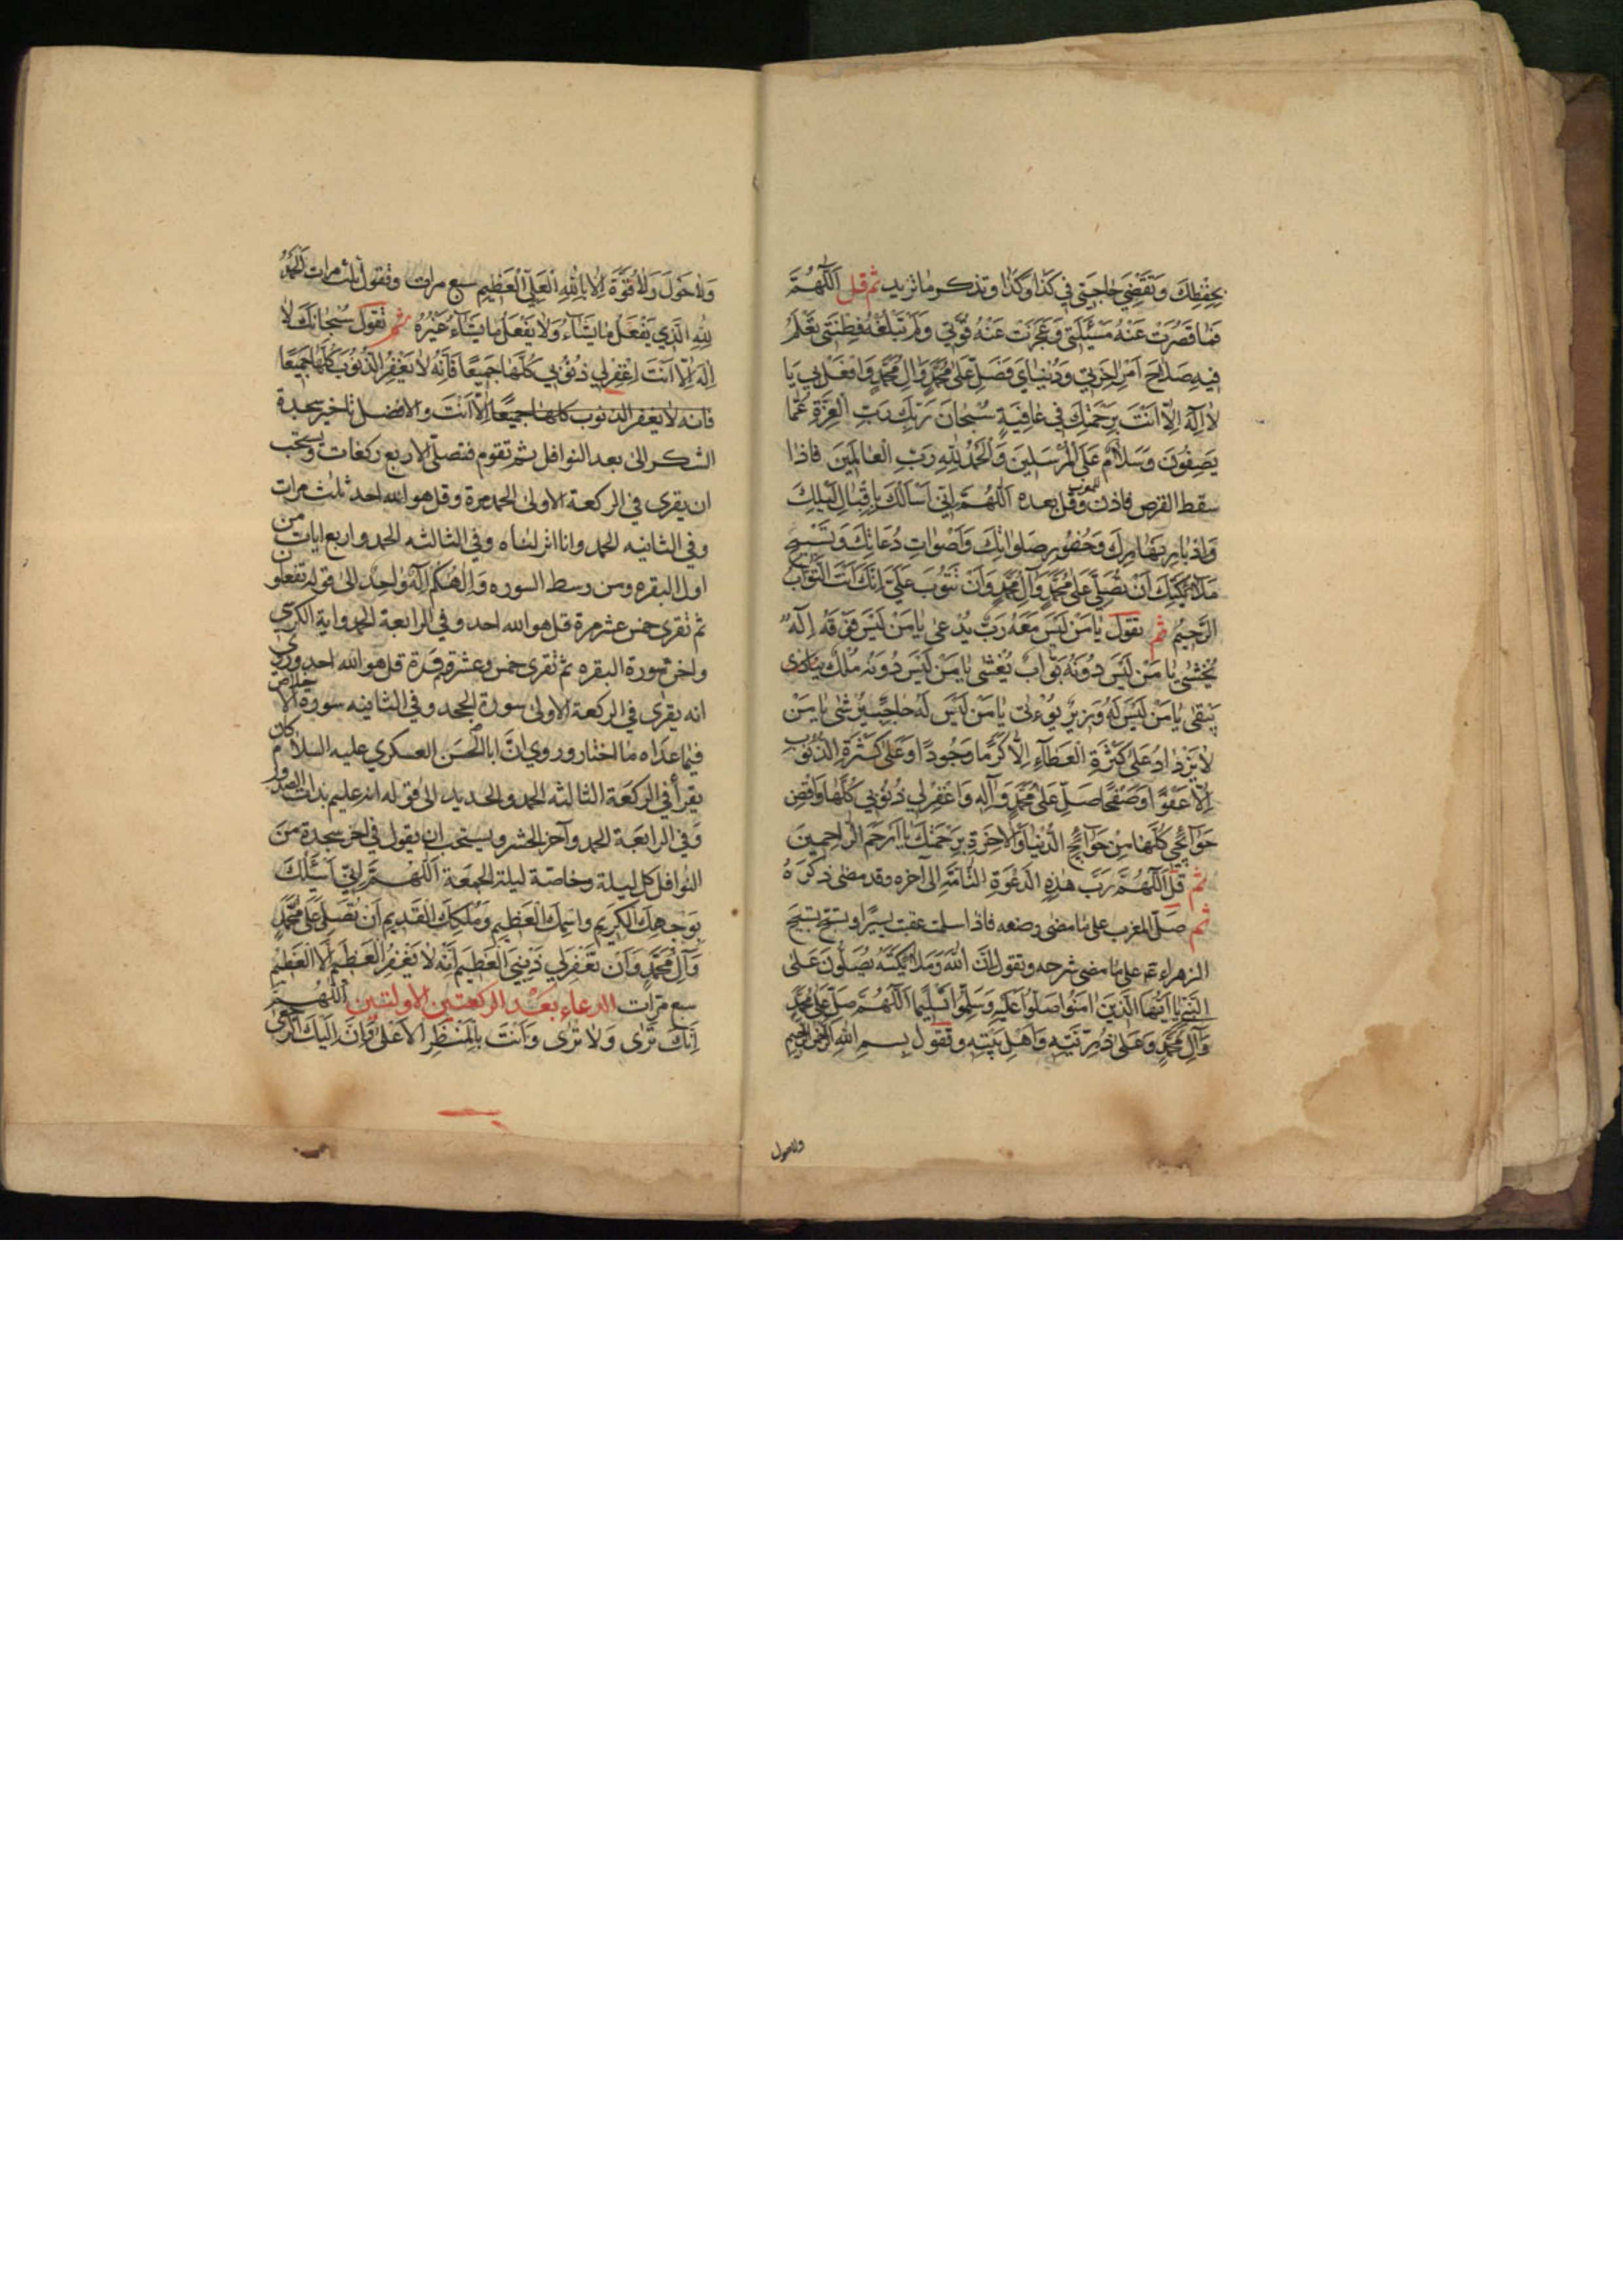 بحفظك وتقضي حاجتي في كذا وكذا وتذكر ما تريد ثم قل اللّهمّ
فما قصرت عنه مسئلتي وعجزت عنه قوّتي ولم تبلغه فطنتي تعلم
فيه صلاح امر اخرتي ودنياي فصلّ على محمّد وال محمّد وافعل بي يا
لا اله الّا انت برحمتك في عافية سبحان ربك ربّ العزّة عمّا
يصفون وسلام على المرسلين والحمد لله ربّ العالمين فاذا
سقط القرص فاذن للمغرب وقل بعده اللّهمّ انّي اسالك باقبال ليلك
وادبار نهارك وحضور صلواتك واصوات دعاتك وتسبيح
ملائكتك ان تصلّي على محمّد وآل محمّد وان تتوب عليّ انّك انت التّوّاب
الرّحيم ثم تقول يا من ليس معه ربّ يدعى يا من ليس فوقه اله
يخشى يا من ليس دونه بوّاب يغشى يا من ليس دونه ملك
يتّقى يا من ليس له وزير يؤتى يا من ليس له حاجب يرشى يا من
لا يزداد على كثرة العطاء الّا كرما وجودا وعلى كثرة الذنوب
الّا عفوا وصفحا صلّ على محمّد وآله واغفر لي ذنوبي كلّها واقض
حوآئجي كلّها من حوآئج الدّنيا والآخرة برحمتك يا ارحم الرّاحمين
ثم قل اللّهمّ ربّ هذه الدّعوة التّامّة الى آخره وقد مضى ذكره
ثم صلّ المغرب على ما مضى وصفه فاذا سلمت عقبت يسيرا وتسبّح تسبيح
الزهراء ع على ما مضى شرحه وتقول انّ الله وملائكته يصلّون على
النّبيّ يا ايّها الّذين امنوا صلّوا عليه وسلّموا تسليما اللّهمّ صلّ على محمّد
وآل محمّد وعلى ذرّيّته واهل بيته وتقول بسم الله الرّحمن الرّحيم
ولاحول
ولا حول ولا قوّة الّا بالله العليّ العظيم سبع مرات وتقول ثلث مرات الحمد
لله الّذي يفعل ما يشاء ولا يفعل ما يشاء غيره ثم تقول سبحانك لا
اله الّا انت اغفر لي ذنوبي كلّها جميعا فانّه لا يغفر الذّنوب كلّها جميعا
فانه لا يغفر الذنوب كلها جميعا الّا انت والافضل تاخير سجدة
الشكر الى بعد النوافل ثم تقوم فتصلّي الاربع ركعات ويستحب
ان يقرى في الركعة الاولى الحمد مرة وقل هو الله احد ثلث مرات
وفي الثانيه الحمد وانا انزلناه وفي الثالثه الحمد واربع ايات من
اول البقره ومن وسط السوره والهكم اله واحد الى قوله تعقلون
ثم تقرى خمس عشر مرة قل هو الله احد وفي الرابعة الحمد واية الكرسي
واخر سورة البقره ثم تقرى خمس وعشرة مرة قل هو الله احد وروي
انه يقرى في الركعة الاولى سورة الجحد وفي الثانيه سورة الاخلاص
فيما عداه ما اختار وروي انّ ابا الحسن العسكري عليه السلام كان
يقرأ في الركعة الثالثه الحمد والحديد الى قوله انه عليم بذات الصدور
وفي الرابعة الحمد وآخر الحشر ويستحب ان يقول في اخر سجدة من
النوافل كل ليلة وخاصّة ليلة الجمعة اللّهمّ انّي اسئلك
بوجهك الكريم واسمك العظيم وملكك القديم ان تصلّي على محمّد
وآل محمّد وان تغفر لي ذنبي العظيم انّه لا يغفر العظيم الّا العظيم
سبع مرّات الدعاء بعد الركعتين الاولتين اللّهمّ
انّك ترى ولا ترى وانت بالمنظر الاعلى وانّ اليك الرجعى